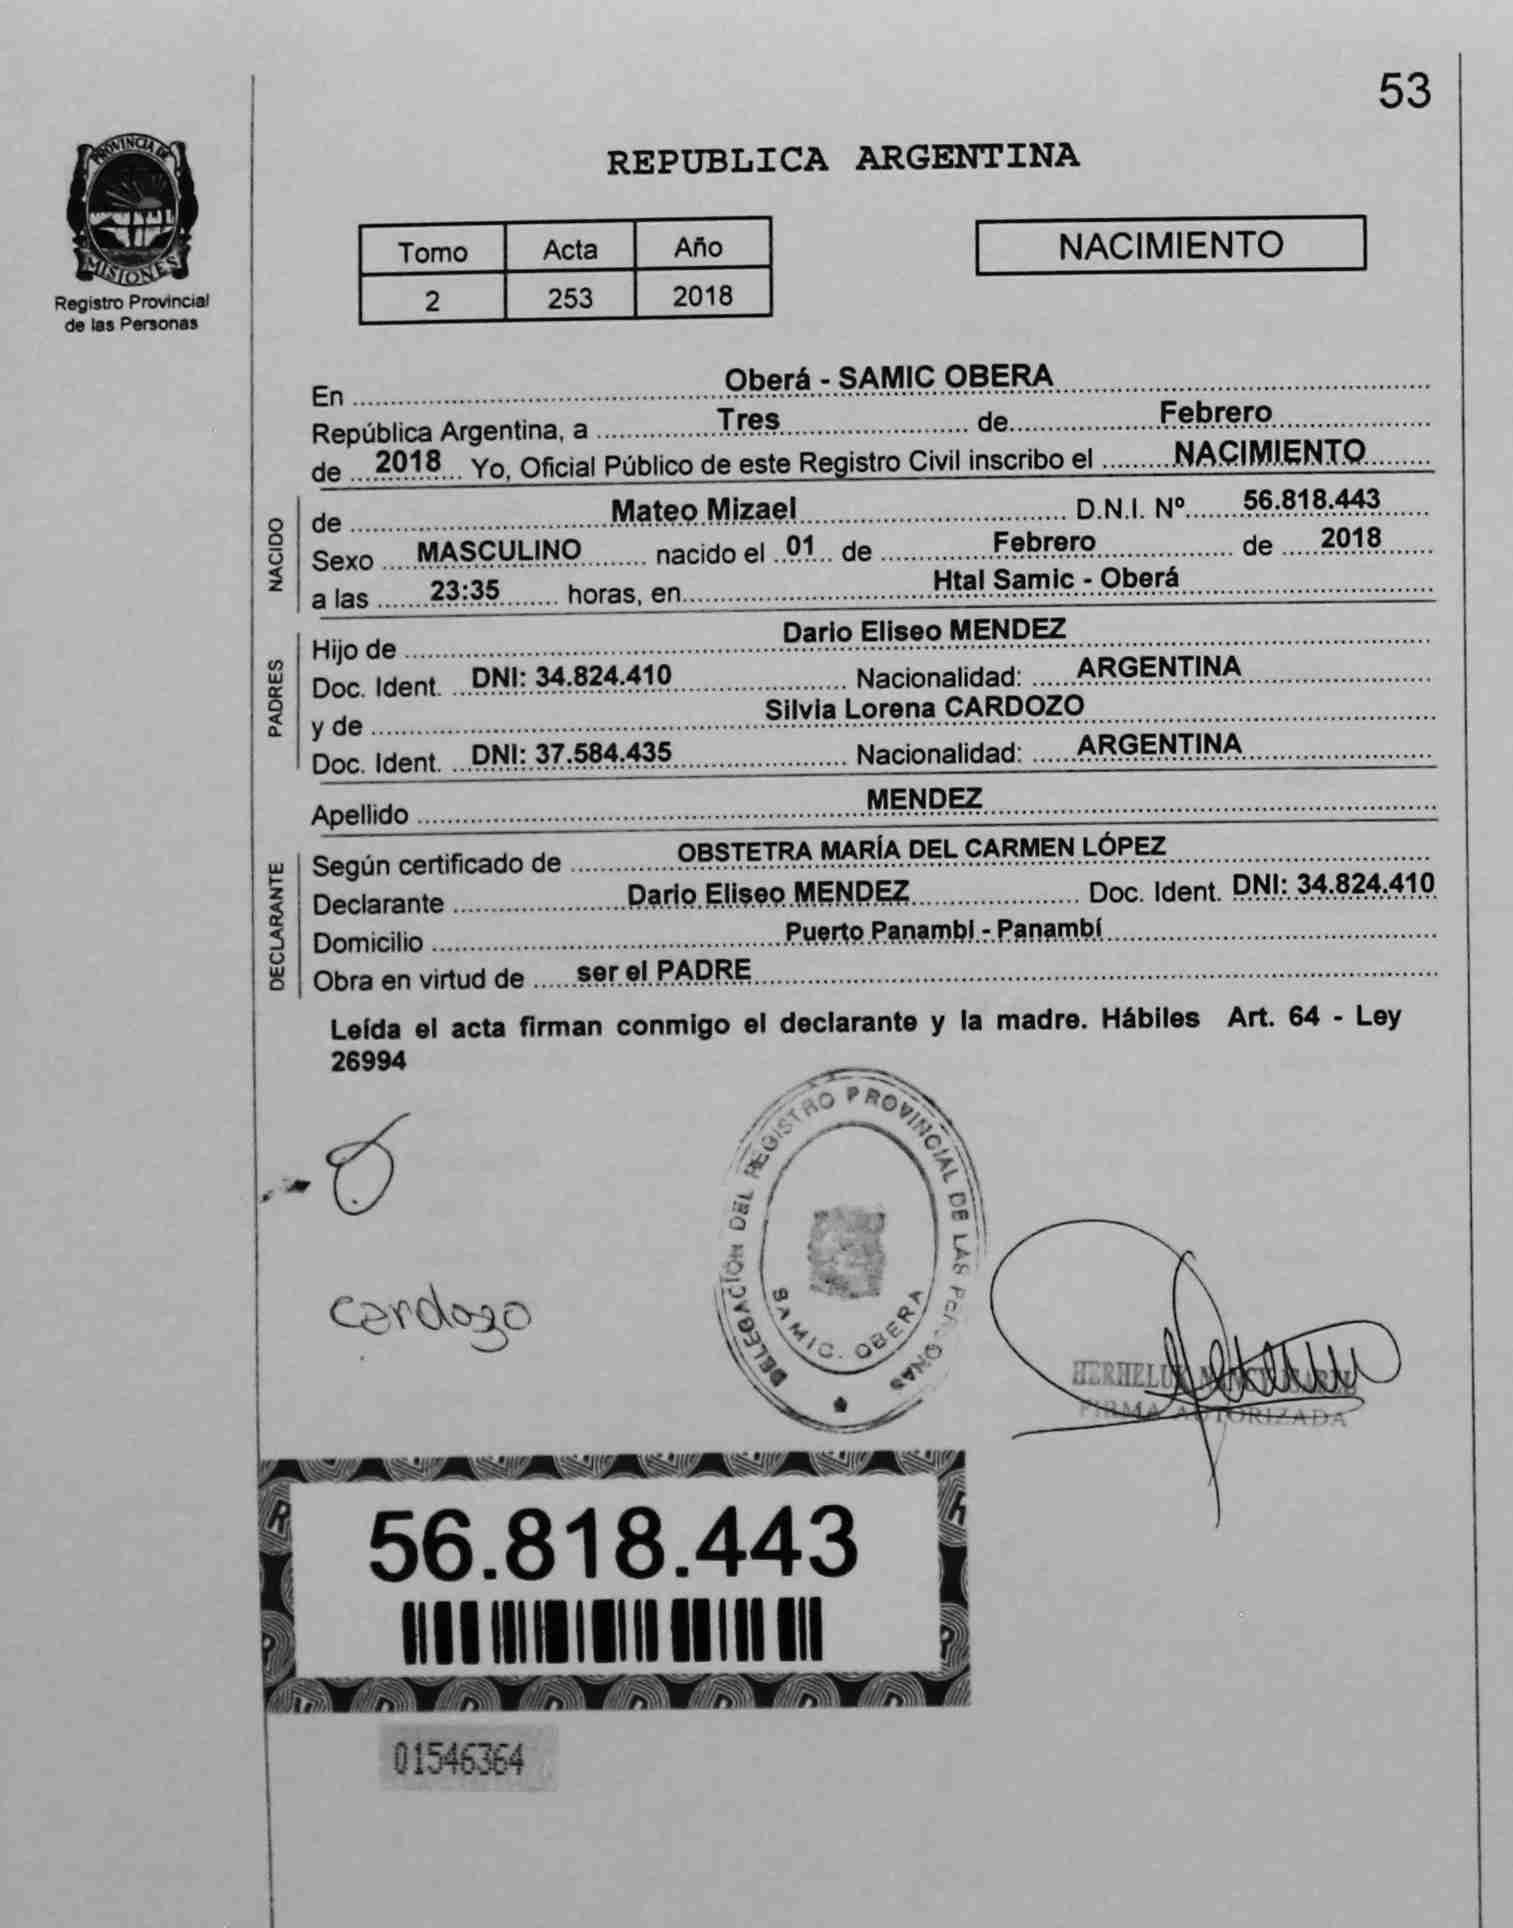 53
PROVINCIA DE
MISIONES
Registro Provincial
de las Personas
REPUBLICA ARGENTINA
Tomo Acta Año
2 253 2018
NACIMIENTO
En Oberá - SAMIC OBERA
República Argentina, a Tres de Febrero
de 2018 Yo, Oficial Público de este Registro Civil inscribo el NACIMIENTO
NACIDO
de Mateo Mizael D.N.I. Nº 56.818.443
Sexo MASCULINO nacido el 01 de Febrero de 2018
a las 23:35 horas, en Htal Samic - Oberá
PADRES
Hijo de Dario Eliseo MENDEZ
Doc. Ident. DNI: 34.824.410 Nacionalidad: ARGENTINA
y de Silvia Lorena CARDOZO
Doc. Ident. DNI: 37.584.435 Nacionalidad: ARGENTINA
Apellido MENDEZ
DECLARANTE
Según certificado de OBSTETRA MARÍA DEL CARMEN LÓPEZ
Declarante Dario Eliseo MENDEZ Doc. Ident. DNI: 34.824.410
Domicilio Puerto Panambi - Panambí
Obra en virtud de ser el PADRE
Leída el acta firman conmigo el declarante y la madre. Hábiles Art. 64 - Ley
26994
DELEGACIÓN DEL REGISTRO PROVINCIAL DE LAS PERSONAS
SAMIC. OBERA
cardozo
FIRMA AUTORIZADA
56.818.443
01546364